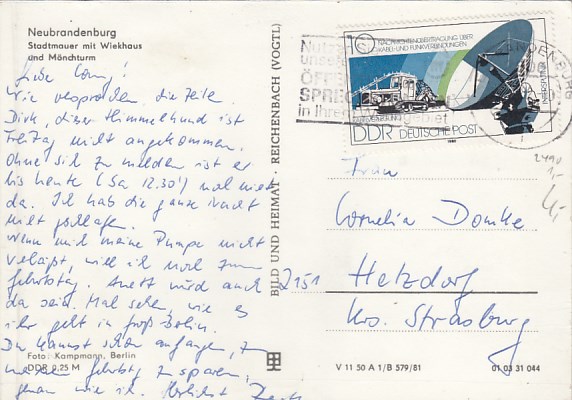 Neubrandenburg
Stadtmauer mit Wiekhaus
und Mönchturm
Liebe Conny!
Wie versprochen die Zeilen
Dirk, dieser Himmelhund ist
Freitag nicht angekommen.
Ohne sich zu melden ist er
bis heute (Sa 12.30') noch nicht
da. Ich hab die ganze Nacht
nicht geschlafen.
Wenn mich meine Pumpe nicht
verläßt, will ich noch zum
Geburtstag. Anett wird auch
da sein. Mal sehen, wie es
ihr geht in groß Berlin.
Du kannst schon anfangen, z
meinen Geburtstag zu sparen,
genau wie ich. Herzlichst
Foto: Kampmann, Berlin
DDR 0,25 M
BILD UND HEIMAT · REICHENBACH (VOGTL)
10 NACHRICHTENÜBERTRAGUNG ÜBER
KABEL- UND FUNKVERBINDUNGEN
INTERSPUTNIK
KABELVERLEGUNG
DDR DEUTSCHE POST
1980
Nutzt
unsere
ÖFF
SPRE
in Ihrem gebiet
ANDENBURG
2490
1,-
Frau
Cornelia Domke
2151 Hetzdorf
Krs. Strasburg
V 11 50 A 1/B 579/81
01 03 31 044